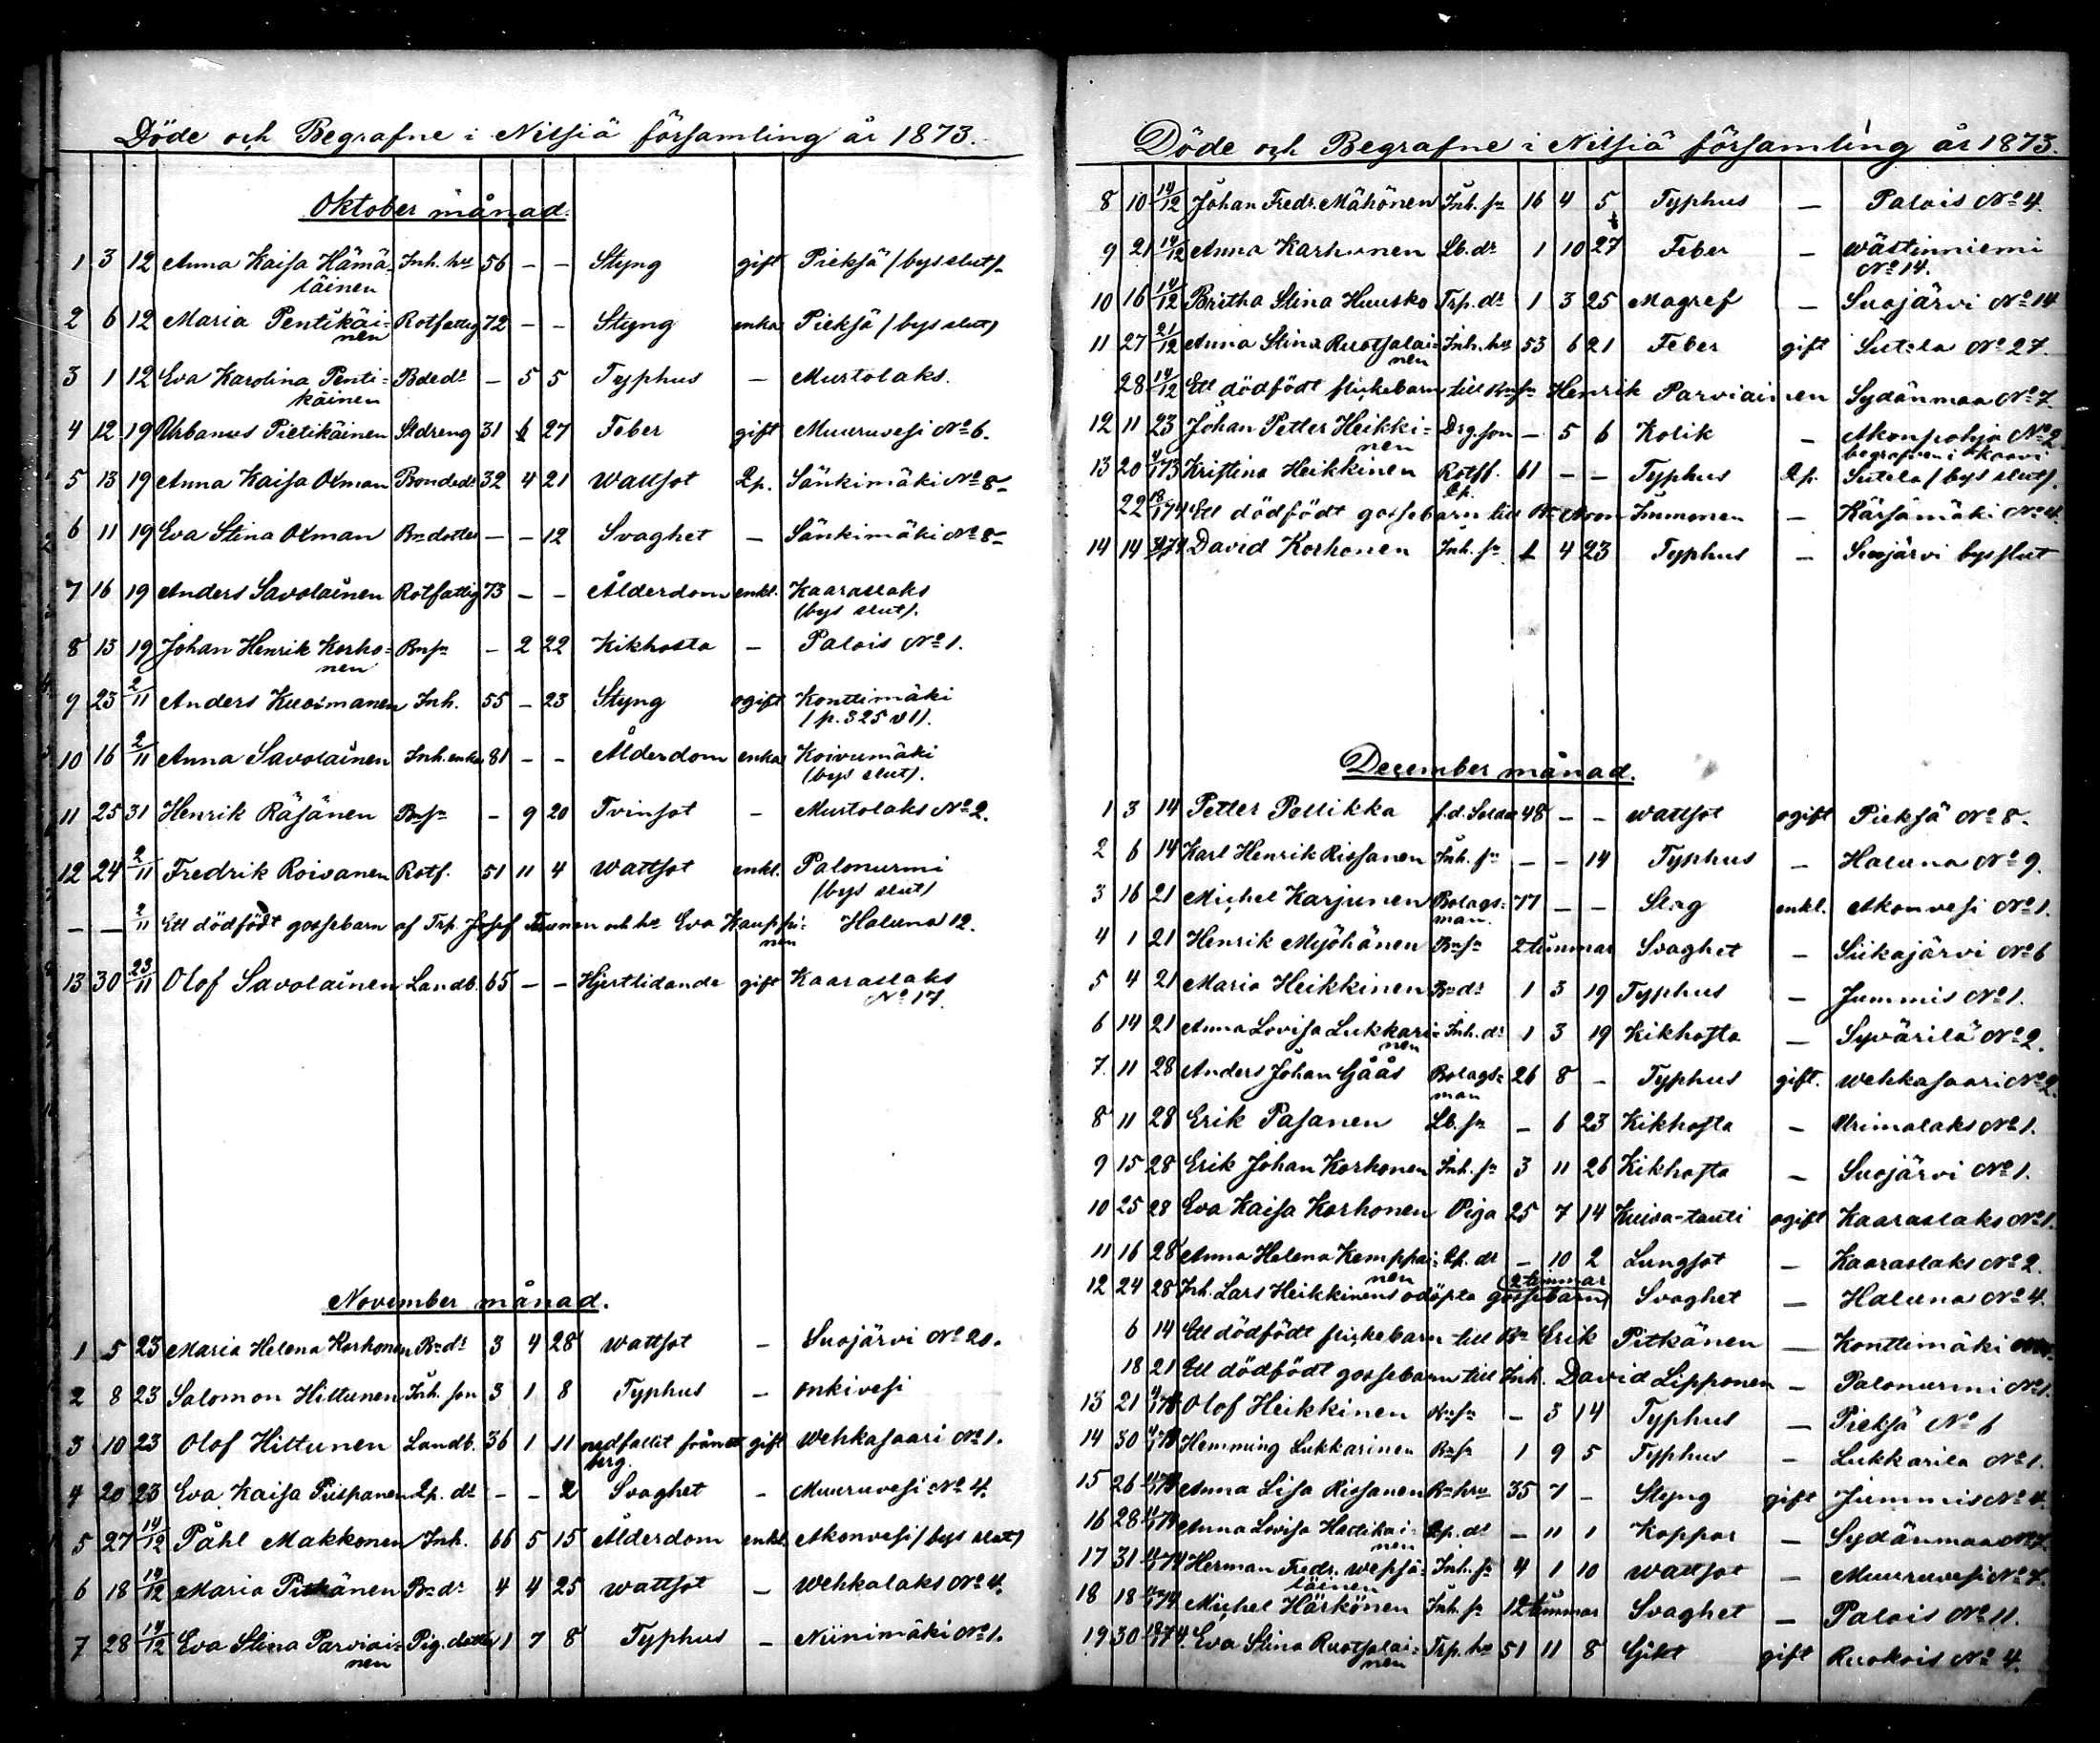 Döde och Begrafne i Nilsiä församling år 1873.
Oktober månad.
1 3 12 Anna Kaisa Hämä- Inh. hu 56 - - Styng gift Pieksä (bys slut).
läinen
2 6 12 Maria Pentikäi- Rotfattig 72 - - Styng enka Pieksä (bys slut)
nen
3 1 12 Eva Karolina Penti- Bdedr - 5 5 Typhus - Murtolaks.
käinen
4 12 19 Urbanus Pietikäinen Stdreng 31 6 27 Feber gift Muuruvesi No 6.
5 13 19 Anna Kaisa Oxman Bondedr 32 4 21 Wattsot Qp. Sänkimäki No 8
6 11 19 Eva Stina Oxman Bndotter - - 12 Svaghet - Sänkimäki No 8
7 16 19 Anders Savolainen Rotfattig 73 - - Ålderdom enkl. Kaaraslaks
(bys slut).
8 13 19 Johan Henrik Korho- Bnsn - 2 22 Kikhosta - Palois No 1.
nen
9 23 2/11 Anders Kuosmanen Inh. 55 - 23 Styng ogift Konttimäki
(p. 325 )
10 16 2/11 Anna Savolainen Inh. enka 81 - - Ålderdom enka Koivumäki
(bys slut).
11 25 31 Henrik Räsänen Bnsn - 9 20 Tvinsot - Murtolaks No 2.
12 24 2/11 Fredrik Roivanen Rotf. 51 11 4 Wattsot enkl. Palonurmi
(bys slut)
- - 2/11 Ett dödfödt gossebarn af Trp. Josef och hu Eva Kauppi- Haluna 12.
nen
13 30 23/11 Olof Savolainen Landb. 65 - - Hjertlidande gift Kaaraslaks
No 17.
November månad.
1 5 23 Maria Helena Korhonen Bndr 3 4 28 Wattsot - Suojärvi No 20.
2 8 23 Salomon Hiltunen Inh. son 3 1 8 Typhus - Onkivesi
3 10 23 Olof Hiltunen Landb. 36 1 11 nedfallit från ett gift Wehkasaari No 1.
berg.
4 20 23 Eva Kaisa Piispanen Qp. dr - - 2 Svaghet - Muuruvesi No 4.
5 27 14/12 Påhl Makkonen Inh. 66 5 15 Ålderdom enkl. Akonvesi (bys slut)
6 18 14/12 Maria Pitkänen Bndr 4 4 25 Wattsot - Wehkalaks No 4.
7 28 14/12 Eva Stina Parviai- Pig. dotter 1 7 8 Typhus - Niinimäki No 1.
nen
Döde och Begrafne i Nilsiä församling år 1873.
8 10 14/12 Johan Fredr. Mähönen Inh. sn 16 4 5 Typhus - Palois No 4.
9 21 14/12 Anna Karhunen Lb. dr 1 10 27 Feber - Wästinniemi
No 14.
10 16 14/12 Britha Stina Huusko Trp. dr 1 3 25 Magref - Suojärvi No 14
11 27 21/12 Anna Stina Ruotsalai- Inh. hu 53 6 21 Feber gift Sutela No 27.
nen
28 14/12 Ett dödfödt flickebarn till Bnsn Henrik Parviainen Sydänmaa No 7.
12 11 23 Johan Petter Heikki- Drg. son - 5 6 Kolik - Akonpohja No 2
nen begrafven i Kaavi
13 20 4/1 73 Kristina Heikkinen Rotff. 61 - - Typhus Qp. Sutela (bys slut).
Qp.
22 18/1 74 Ett dödfödt gossebarn till Bn Aron Immonen - Kärsämäki No 4.
14 14 74 David Korhonen Inh. sn 1 4 23 Typhus - Suojärvi bys slut
December månad.
1 3 14 Petter Pellikka f.d. Soldat 48 - - Wattsot ogift Pieksä No 8.
2 6 14 Karl Henrik Rissanen Inh. sn - - 14 Typhus - Haluna No 9.
3 16 21 Michel Karjunen Bolags- 77 - - Slag enkl. Akonvesi No 1.
man.
4 1 21 Henrik Myöhänen Bnsn 2 timmar Svaghet - Siikajärvi No 6
5 4 21 Maria Heikkinen Bndr 1 3 19 Typhus - Jummis No 1.
6 14 21 Anna Lovisa Lukkari- Inh. dr 1 3 19 Kikhosta - Syvärilä No 2.
nen
7. 11 28 Anders Johan Gåås Bolags- 26 8 - Typhus gift. Wehkasaari No 2.
man
8 11 28 Erik Pasanen Lb. sn - 6 23 Kikhosta - Urimolaks No 1.
9 15 28 Erik Johan Korhonen Inh. sn 3 11 26 Kikhosta - Suojärvi No 1.
10 25 28 Eva Kaisa Korhonen Piga 25 7 14 Kuiva-tauti ogift Kaaraslaks No 1.
11 16 28 Anna Helena Kemppai- Qp. dr - 10 2 Lungsot - Kaaraslaks No 2.
nen (2 timmar
12 24 28 Inh. Lars Heikkinens odöpta gossebarn) Svaghet - Haluna No 4.
6 14 Ett dödfödt flickebarn till Bn Erik Pitkänen - Konttimäki
18 21 Ett dödfödt gossebarn till Inh. David Lipponen - Palonurmi No 1.
13 21 Olof Heikkinen Bnsn - 3 14 Typhus - Pieksä No 6
14 30 Hemming Lukkarinen Bnsn 1 9 5 Typhus - Lukkarila No 1.
15 26 Anna Lisa Rissanen Bnhru 35 7 - Styng gift Jummis No 4.
16 28 Anna Lovisa Hartikai- Qp. dr - 11 1 Koppor - Sydänmaa No 7.
nen
17 31 Herman Fredr. Wepsä- Inh. sn 4 1 10 Wattsot - Muuruvesi No 7.
läinen
18 18 Michel Härkönen Inh. sn 12 timmar Svaghet - Palois No 11.
19 30 Eva Stina Ruotsalai- Trp. hu 51 11 8 Gikt gift Ruokois No 4.
nen